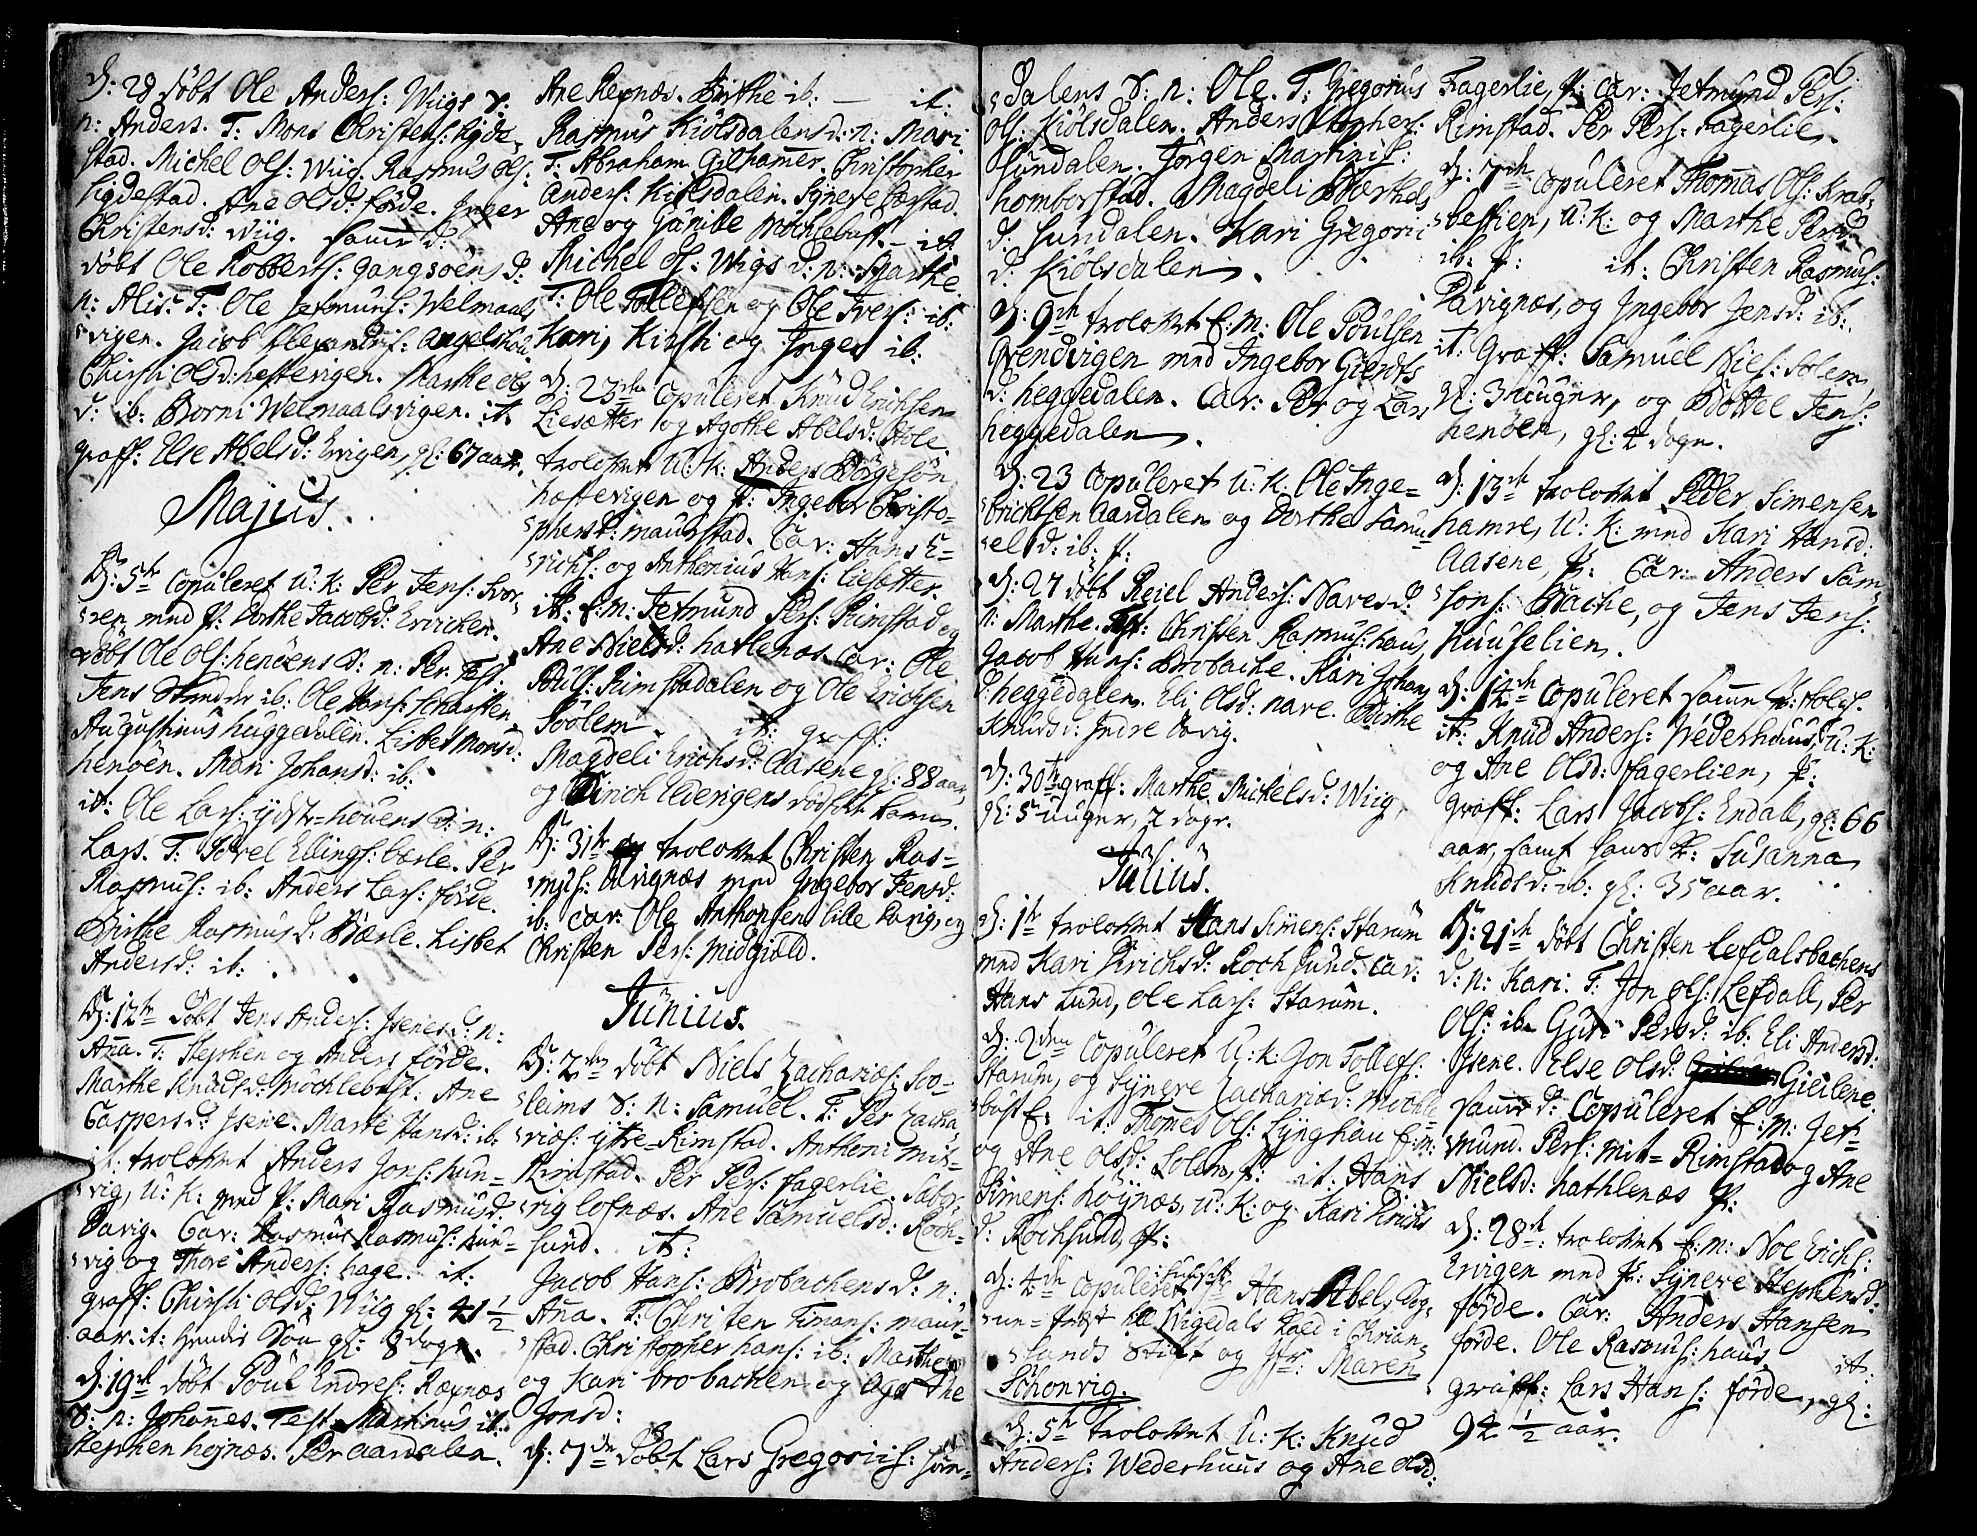 D: 28 döbt Ole Anders: Wiigs S:
n: Anders. T: Mons Christens: Hyde-
stad. Michel Ols: Wiig. Rasmus Ols:
Hÿdestad. Ane Olsd: förde. Inger
Christensd: Wiig. samme d:
döbt Ole Robberts: Gangsöens D:
n: Alis. T: Ole Jetmuns: Welmaals
vigen. Jacob
Christi Olsd: heftevigen. Marthe Ols
d: ib: Borni Welmaalsvigen. it:
graff: Else Abelsd: Ervigen, gl: 67 aar.
Majus.
D: 5te Copuleret U: K: Per Jens: Hvor-
ren med P: Dorthe Jacobsd: Ervichen.
döbt Ole Ols: henöens S: n: Per. Test:
Jens ib: Ole Hans: Scharsten,
Augustinus huggedalen. Lisbet Monsd:
henöen. Mari Johansd: ib:
it: Ole Lars: ÿdst=houens S: n:
Lars. T: Ellings: bærle. Per
Rasmus: ib: Anders Lars: förde.
Birthe Rasmusd: Bærle. Lisbet
Andersd: ib:
D: 12te Döbt Jens Anders: Isenes d: n:
Aña. T: Stephen og Anders förde.
Marthe Knudsd: Möchlebust. Ane
Caspersd: Isene. Marte Hansd: ib:
it: trolovet Anders Jons: hun-
vig, U: K: med P: Mari Rasmusd:
Davig. Cav: Rasmus Rasmus: hun-
vig og Thore Anders: hage. it:
graff: Christi Olsd: Wiig gl: 41 1/2
aar. it: hendis Sön gl: 8 dage.
D: 19de döbt Poul Endres: Ræxnæs
S: n: Johannes. Test: Martinus it:
Stephen hojnæs. Per aardalen.
Ane Rexnæs. Birthe ib: — it:
Rasmus Kiölsdalens d: n: Mari
T: Abraham Gilhamer. Christopher
Anders: Kiölsdalen. Synneve
Ane og Gunille Möchlebust. - it:
Michel Ols: Wigs d: n: Marthe
T: Ole Tollefsen og Ole Ivers: ib:
Kari, Kirsti og Inger ib:
D: 23de Copuleret Knud Erichsen
Liesætter og Agathe Abelsd: Hole.
trolovet U: K: Anders Börgesön
haftevigen og P: Ingebor Christo-
phersd: maurstad. Cav: Hans E-
richs: og Anthonius Hans: Liesætter.
it: E: M: Jetmund Pers: Rimstad og
Ane Nielsd: hatlenæs. Cav: Ole
Pouls: Rimstadalen og Ole Erichsen
Soolem. it: graff:
Magdeli Erichsd: Aasene gl: 88 aar,
og Elderigens dödföt barn.
D: 31te trolovet Christen Ras-
mus: Davignæs med Ingebor Jensd:
ib: Cav: Ole Anthonsen lille Davig, og
Christen Pers: Midgiæld.
Junius.
D: 2den döbt Niels Zacharias: Soo-
leims S: n: Samuel. T: Per Zacha-
rias: ÿtre=Rimstad. Anthoni Mit-
Rimstad. Per Pers: fagerlie. Sabor
rig lofnæs. Ane Samuelsd: Roch-
sund. it:
Jacob Hans: Brobachens d: n:
Aña. T: Christen Timans: maur-
stad. Christopher hans: ib: Marthe
og Kari brobachen og Agathe
Jonsd:
D: 7de döbt Lars Gregoriis: Sun-
dalens S: n: Ole. T: Gregorius
Ols: Kiölsdalen. Anders Stophers:
Sundalen. Jörgen Martinis:
homborstad. Magdeli Barthels
d: Sundalen. Kari Gregorii
d: Kiölsdalen.
D: 9de trolovet E: M: Ole Poulsen
Grendvigen med Ingebor Gierts
d: heggedalen. Cav: Per og Lars
heggedalen.
D: 23 Copuleret U: K: Ole Inge-
brichtsen aardalen og Dorthe Samu-
elsd: ib: P:
D: 27 döbt Reiel Anders: Naves d:
n: Marthe. Test: Christen Rasmus: haus,
Jacob Hans: Brobache. Kari Johans
d: heggedalen. Eli Olsd: nave. Birthe
Knudsd: Indre Davig.
D: 30te graff: Marthe Michelsd: Wiig,
gl: 5 uuger, 2 dage.
Julius.
D: 1te trolovet Hans Simens: Starum
med Kari Erichsd: Rochsund. Cav:
Hans Lund, Ole Lars: Starum.
D: 2den Copuleret U: K: Jon Tollefs:
Starum, og Synneve Zachariæd: Möchle-
bust E. it: Thomes Ols: Lynghau E: M:
og Ane Olsd: Solem, P: it: Hans
Simens: höynæs, U: K: og Kari Erichs
d: Rochsund, P:
D: 4de Copuleret Hans Abel, Sog-
ne=Præst til Qvigedals Kald i Chrian-
sands Stift og Jfr: Maren
Schönvig.
D: 5te trolovet U: K: Knud
Anders: Wederhuus og Ane Olsd:
6.
Fagerlie, P: Cav: Jetmund Pers:
Rimstad. Per Pers: Fagerlie.
D: 7de Copuleret Thomas Ols: Krab-
bestien, U: K: og Marthe Persd:
ib: P: it: Christen Rasmus:
Davignæs, og Ingebor Jensd: ib:
it: Graff: Samuel Niels: Solem,
gl: 3 uuger, og Bottel Jens:
henöen, gl: 4 dage.
D: 13de trolovet Peder Simensen
hamre, U: K: med Kari Hansd:
Aasene, P: Cav: Anders Sam-
sons: Bache, og Jens Jens:
Huuselien.
D: 14de Copuleret samme
it: Knud Anders: Wederhuus, U: K:
og Ane Olsd: fagerlien, P:
graff: Lars Jacobs: Endal, gl: 66
aar, samt hans K: Susanna
Knudsd: ib: gl: 35 aar.
D: 21de döbt Christen Lefdalsbachens
d: n: Kari. T: Jon Ols: Lefdal, Per
Ols: ib. Guri Persd: ib: Eli Andersd:
Isene. Else Olsd: Gieilene.
samme d: Copuleret E: M: Jet-
mund Pers: Mit= Rimstad og Ane
Nielsd: hathlenæs P:
D: 28de: trolovet E: M: Noe Erichs:
Ervigen med P: Synneve Stephensd:
förde. Cav: Anders Hansen
förde. Ole Rasmus: haus. it:
graff: Lars Hans: förde, gl:
94 1/2 aar.